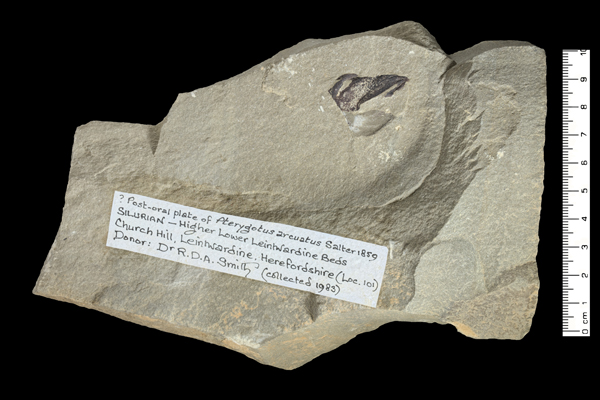 ? Post-oral plate of Pterygotus arcuatus Salter 1859
SILURIAN — Higher Lower Leintwardine Beds
Church Hill, Leintwardine, Herefordshire (Loc. 101)
Donor: Dr R.D.A. Smith (collected 1983)
0 cm 1 2 3 4 5 6 7 8 9 10